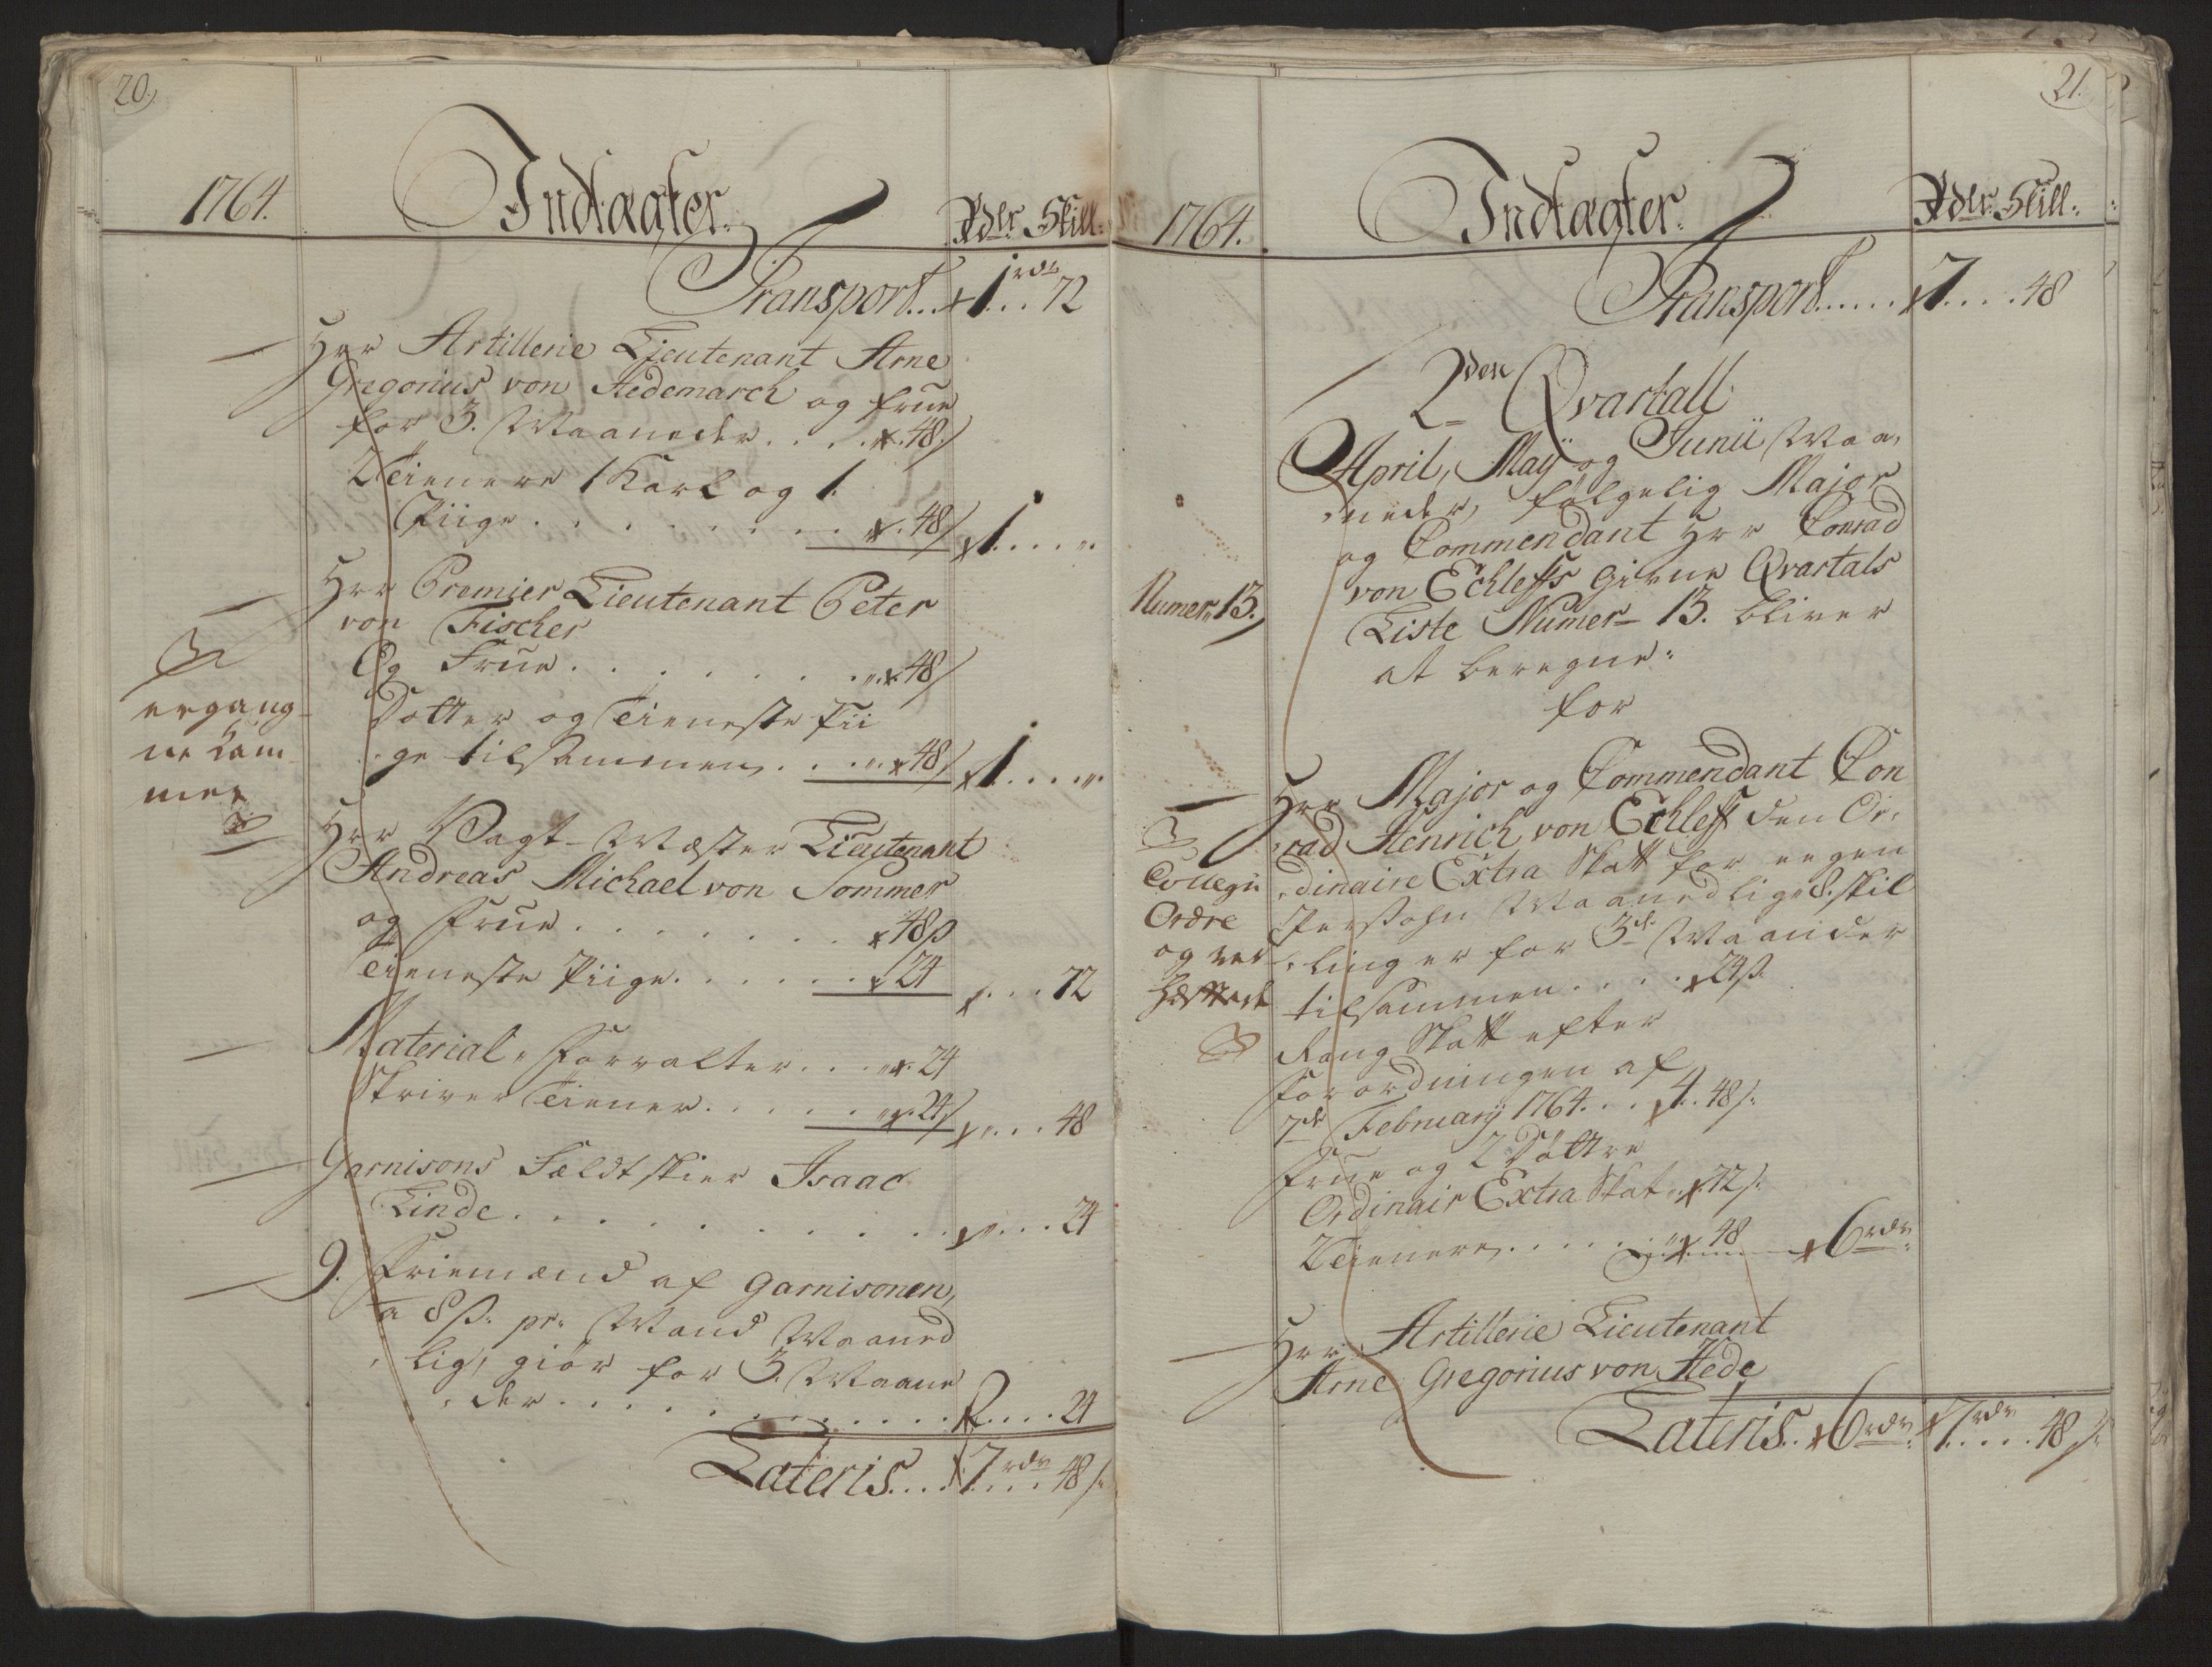 20.
1764.
Indtægter.
Rdlr. Skill.
Transport... 1 rdr. 72
Herr Artillerie Lieutenant Arne
Gregorius von Hedemarch og frue
for 3. Maaneder.... 48/
2 Tienere 1 Karl og 1.
Piige......... 48/ 1....
Herr Premier Lieutenant Peter
von Fischer
Og Frue......... 48/
Dotter og Tieneste Pii
ge tilsammen.... 48/ 1....
ergang
ne
mer
Herr Vagt-Mester Lieutenant
Andreas Michael von Sommer
og Frue........ 48 s
Tieneste Piige...... 24 ... 72
Material-Forvalter.... 24
Skriver Tiener...... 24/ ... 48
Garnisons Feldtskier Isaac
Linde.......... ... 24
9. Friemænd af Garnisonen,
a 8 s. pr. Mand Maaned
lig, giør for 3. Maane
der............. 2.... 24
Lateris.... 7 rdr. 48 s.
21.
1764.
Indtægter.
Rdlr. Skill.
Transport..... 7.... 48
2den Qvartall
April, Maij og Junii Maa
neder, følgelig Major
og Commendant Herr Conrad
von Echleff's givne Qvartals
Numer 13.
Liste Numer 13. bliver
at beregne:
for
Herr Major og Commendant Con
rad Henrich von Echleff den Or
dinaire Extra Skatt for eegen
Collegii
Ordre
og
Persohn Maanedlig 8. skil
linger for 3de Maaneder
tilsammen.... 24 s.
Rang Skatt efter
Forordningen af
7de February 1764... 4. 48 s.
Frue og 2 Døttre
Ordinair Extra Skat.. 72 s.
2 Tienere...... 48 6 rdr.
Herr Artillerie Lieutenant
Arne Gregorius von Hede
Lateris.. 6 rdr. 7 rdr. .... 48 s.